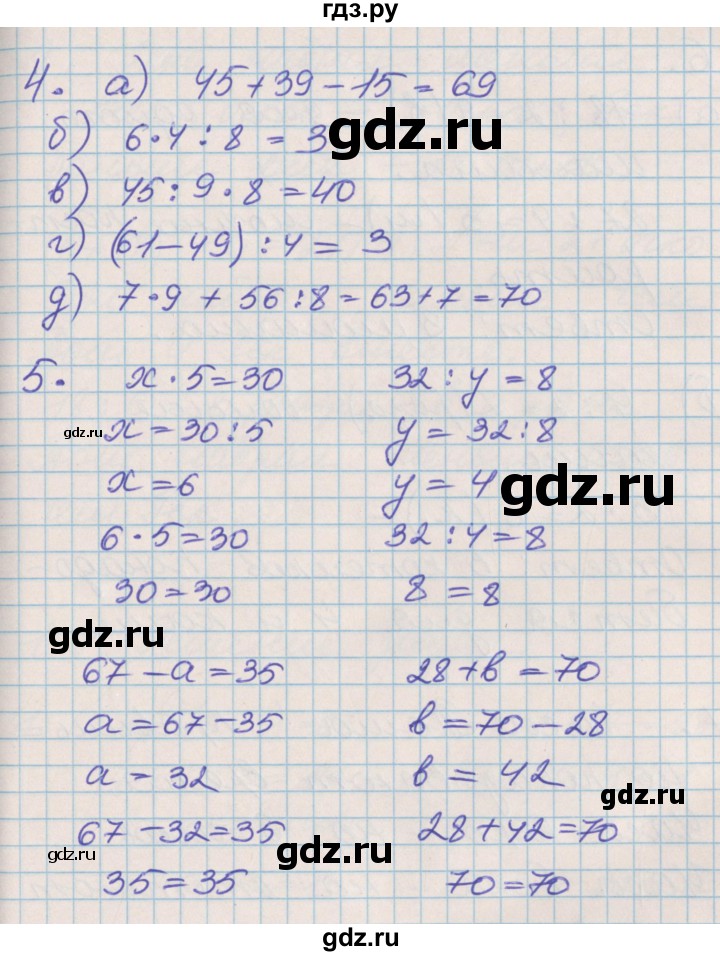 гдз.ру
4. а) 45+39-15=69
б) 6·4:8=3
gdz.ru
в) 45:9·8=40
г) (61-49):4=3
д) 7·9+56:8=63+7=70
5. x·5=30 32:y=8
gdz.ru x=30:5 y=32:8
x=6 y=4 gdz.ru
6·5=30 32:4=8
30=30 8=8
gdz.ru
67-a=35 28+в=70
a=67-35 в=70-28
a=32 в=42
gdz.ru
67-32=35 28+42=70
gdz.ru gdz.ru
35=35 70=70
gdz.ru